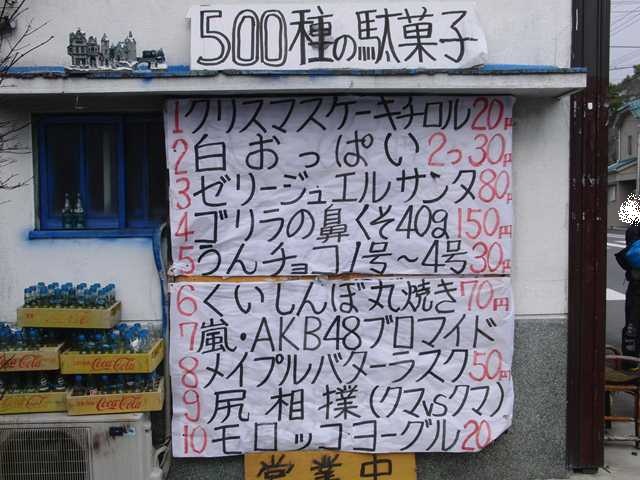 500種の駄菓子
1クリスマスケーキチロル20円
2白おっぱい2つ30円
3ゼリージュエルサンタ80円
4ゴリラの鼻くそ40g150円
5うんチョコ1号～4号30円
6くいしんぼ丸焼き70円
7嵐・AKB48ブロマイド
8メイプルバターラスク50円
9尻相撲(クマvsクマ)
10モロッコヨーグル20
営業中
Coca-Cola
Coca-Cola
Coca-Cola
Coca-Cola